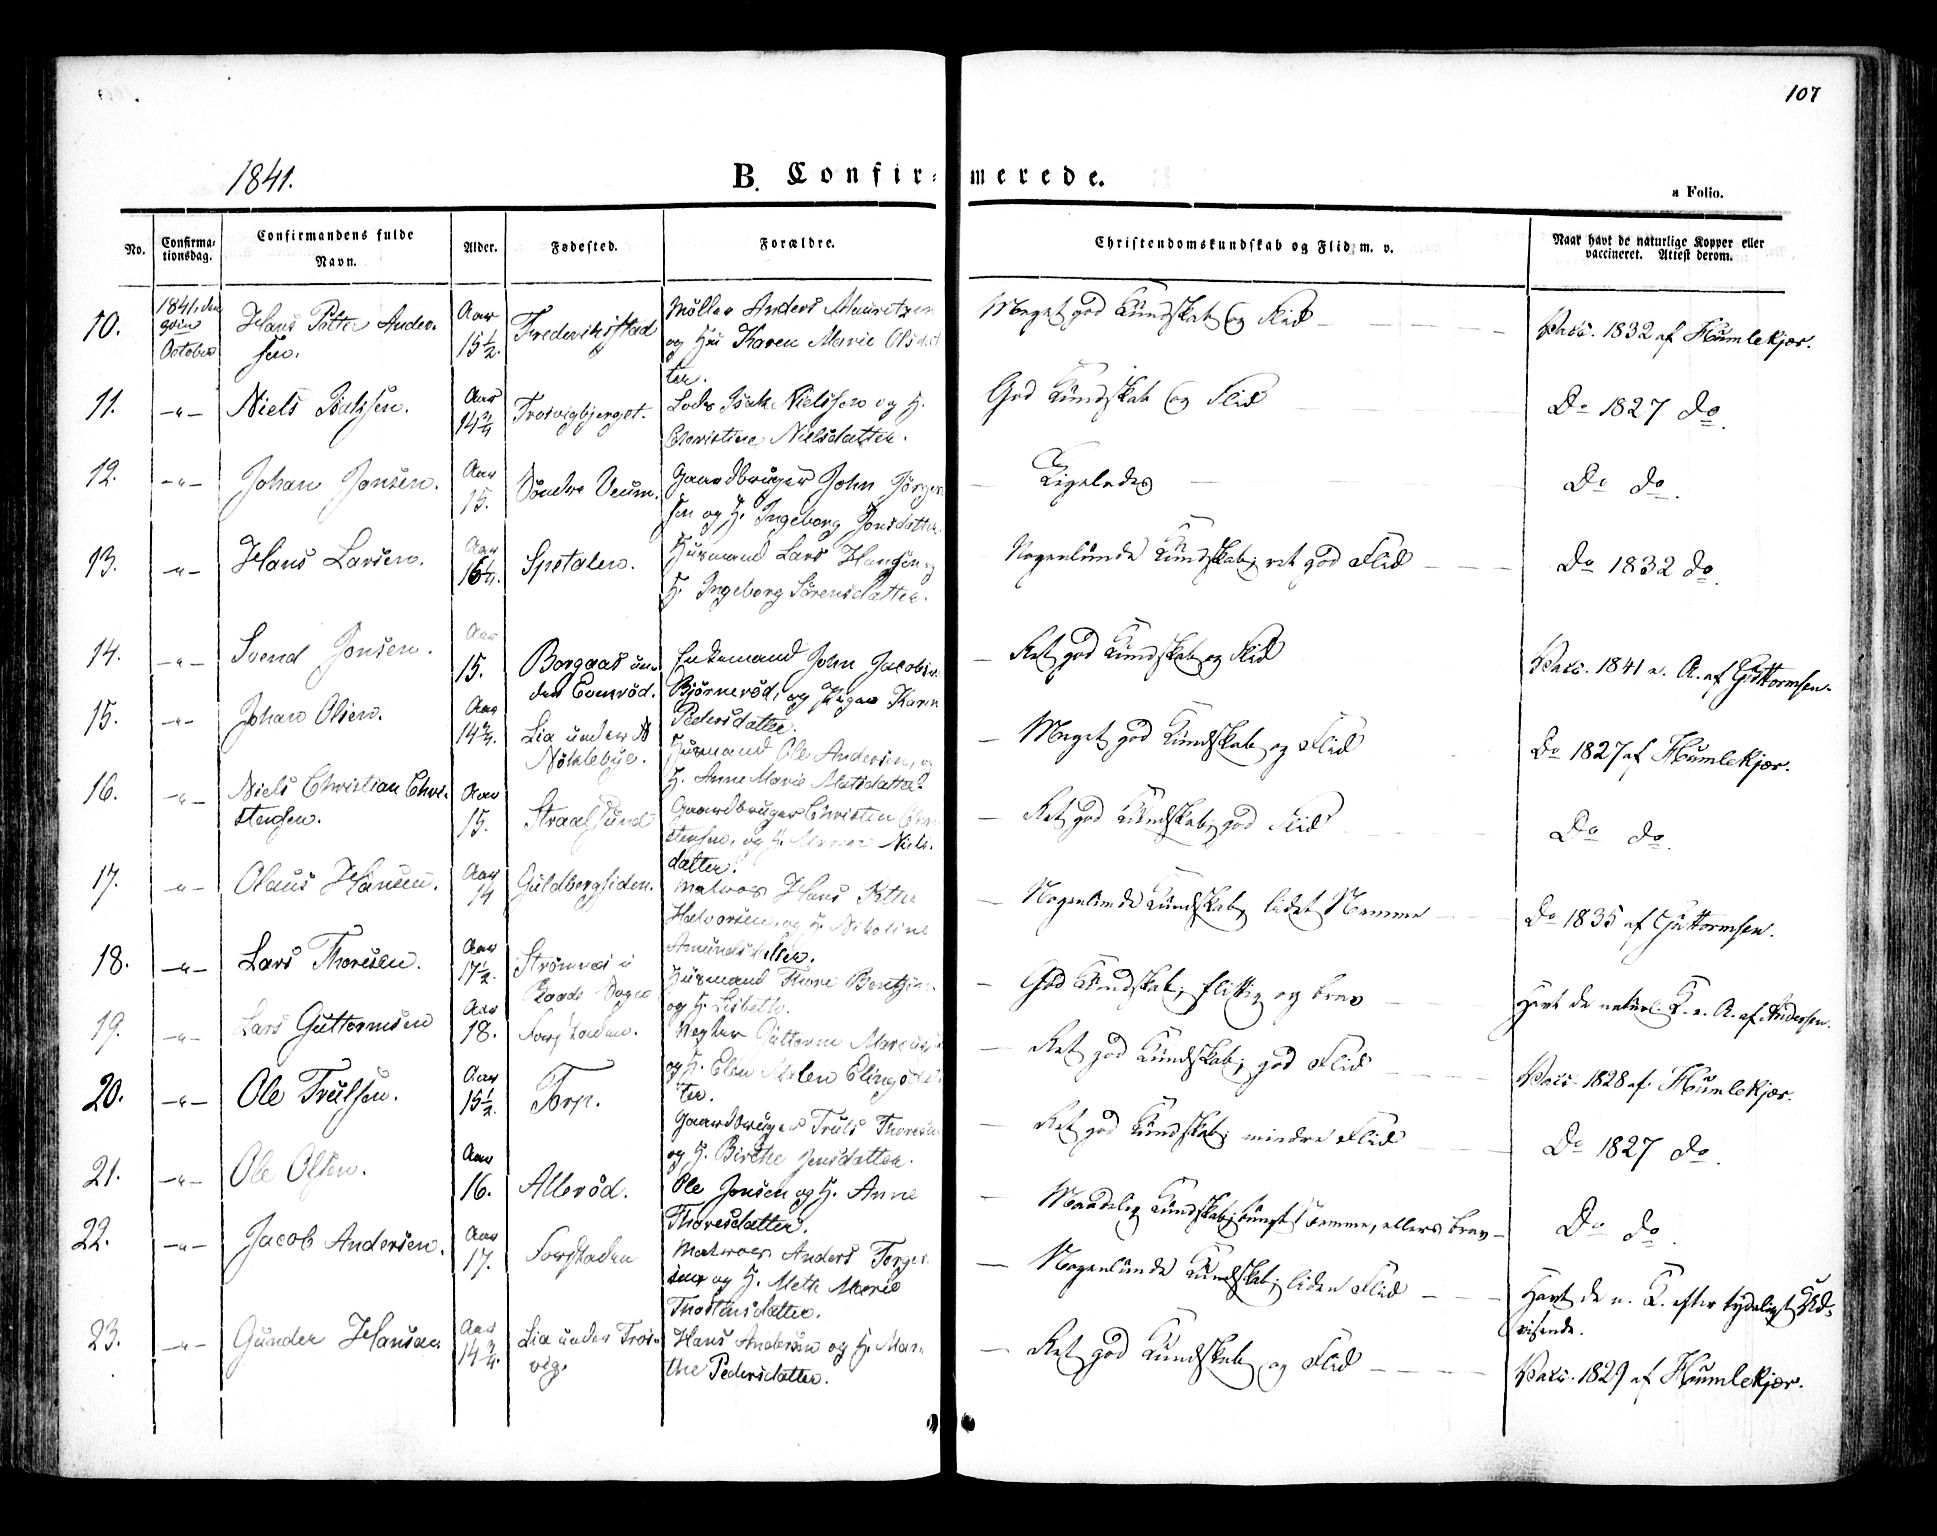 107
1841.
B. Confir-merede.
a Folio.
No. Confirma-tionsdag. Confirmandens fulde Navn. Alder. Fødested. Forældre. Christendomskundskab og Flid m. v. Naar havt de naturlige Kopper eller vaccineret. Attest derom.
10. 1841, den October Hans Petter Ander-sen. Aar 15 1/2. Frederikstad Møller Anders Mauritzen og Karen Marie Olsdatter. Meget god Kundskab og Flid Vacc. 1832 af Humlekjær.
11. -"- Niels Isaksen. Aar 14 3/4 Trosvigbjerget. Lods Isak Nielssen og H. Christine Nielsdatter. God Kundskab og Flid Do 1827 do.
12. -"- Johan Jonsen. Aar 15. Søndre Veum. Gaardbruger John Jørgensen og H. Ingeborg Jonsdatter. Ligeledes Do do.
13. -"- Hans Larsen. Aar 16 1/4. Spetalen. Husmand Lars Hansen og H. Ingeborg Sørensdatter. Nogenlunde Kundskab, ret god Flid Do 1832 do.
14. -"- Svend Jonsen. Aar 15. Borgaas un-der Enkemand John Jacobsen Bjørnerød, og Pigen Karen Pedersdatter. Ret god Kundskab og Flid Vacc. 1841 e. A. af Guttormsen.
15. -"- Johan Olsen. Aar 14 3/4. Lia under N Nøklebye. Husmand Ole Andersen, og H. Anne Marie Matsdatter. Meget god Kundskab og Flid Do 1827 af Humlekjær.
16. -"- Niels Christian Chri-stensen. Aar 15. Straalsund Gaardbruger Christen Christensen, og H. Niels-datter. Ret god Kundskab, god Flid Do do.
17. -"- Olaus Hansen. Aar 14 Guldbergsiden. Matros Hans Petter Halvorsen, og H. Nikoline Amundsdatter. Nogenlunde Kundskab, lidet Nemme Do 1835 af Guttormsen.
18. -"- Lars Thoresen. Aar 17 1/2. Strømnes i Raade Sogn Husmand Thore Bentsen og H. Lisbeth. God Kundskab, flittig og brav Havt de naturl. K. e. A. af Andersen.
19. -"- Lars Guttormsen Aar 18. Forstaden. Guttorm og H. Elen Malen Elingsdatter. Ret god Kundskab, god Flid Vacc. 1828 af Humlekjær.
20. -"- Ole Trulsen. Aar 15 1/2. Torp. Gaardbruger Truls Thoresen og H. Birthe Jensdatter. Ret god Kundskab, mindre Flid Do 1827 do.
21. -"- Ole Olsen. Aar 16. Allerød. Ole Jonsen og H. Anne Thoresdatter. Maadelig Kundskab, tungt Nemme, ellers brav Do do.
22. -"- Jacob Andersen. Aar 17. Forstaden Matros Anders Torgersen og H. Mette Marie Thostensdatter. Nogenlunde Kundskab, liden Flid Havt de n. K. efter tydeligt Ud-visende.
23. -"- Gunder Hansen. Aar 14 3/4. Lia under Tros-vig. Hans Andersen og H. Mar-the Pedersdatter. Ret god Kundskab og Flid Vacc. 1829 af Humlekjær.